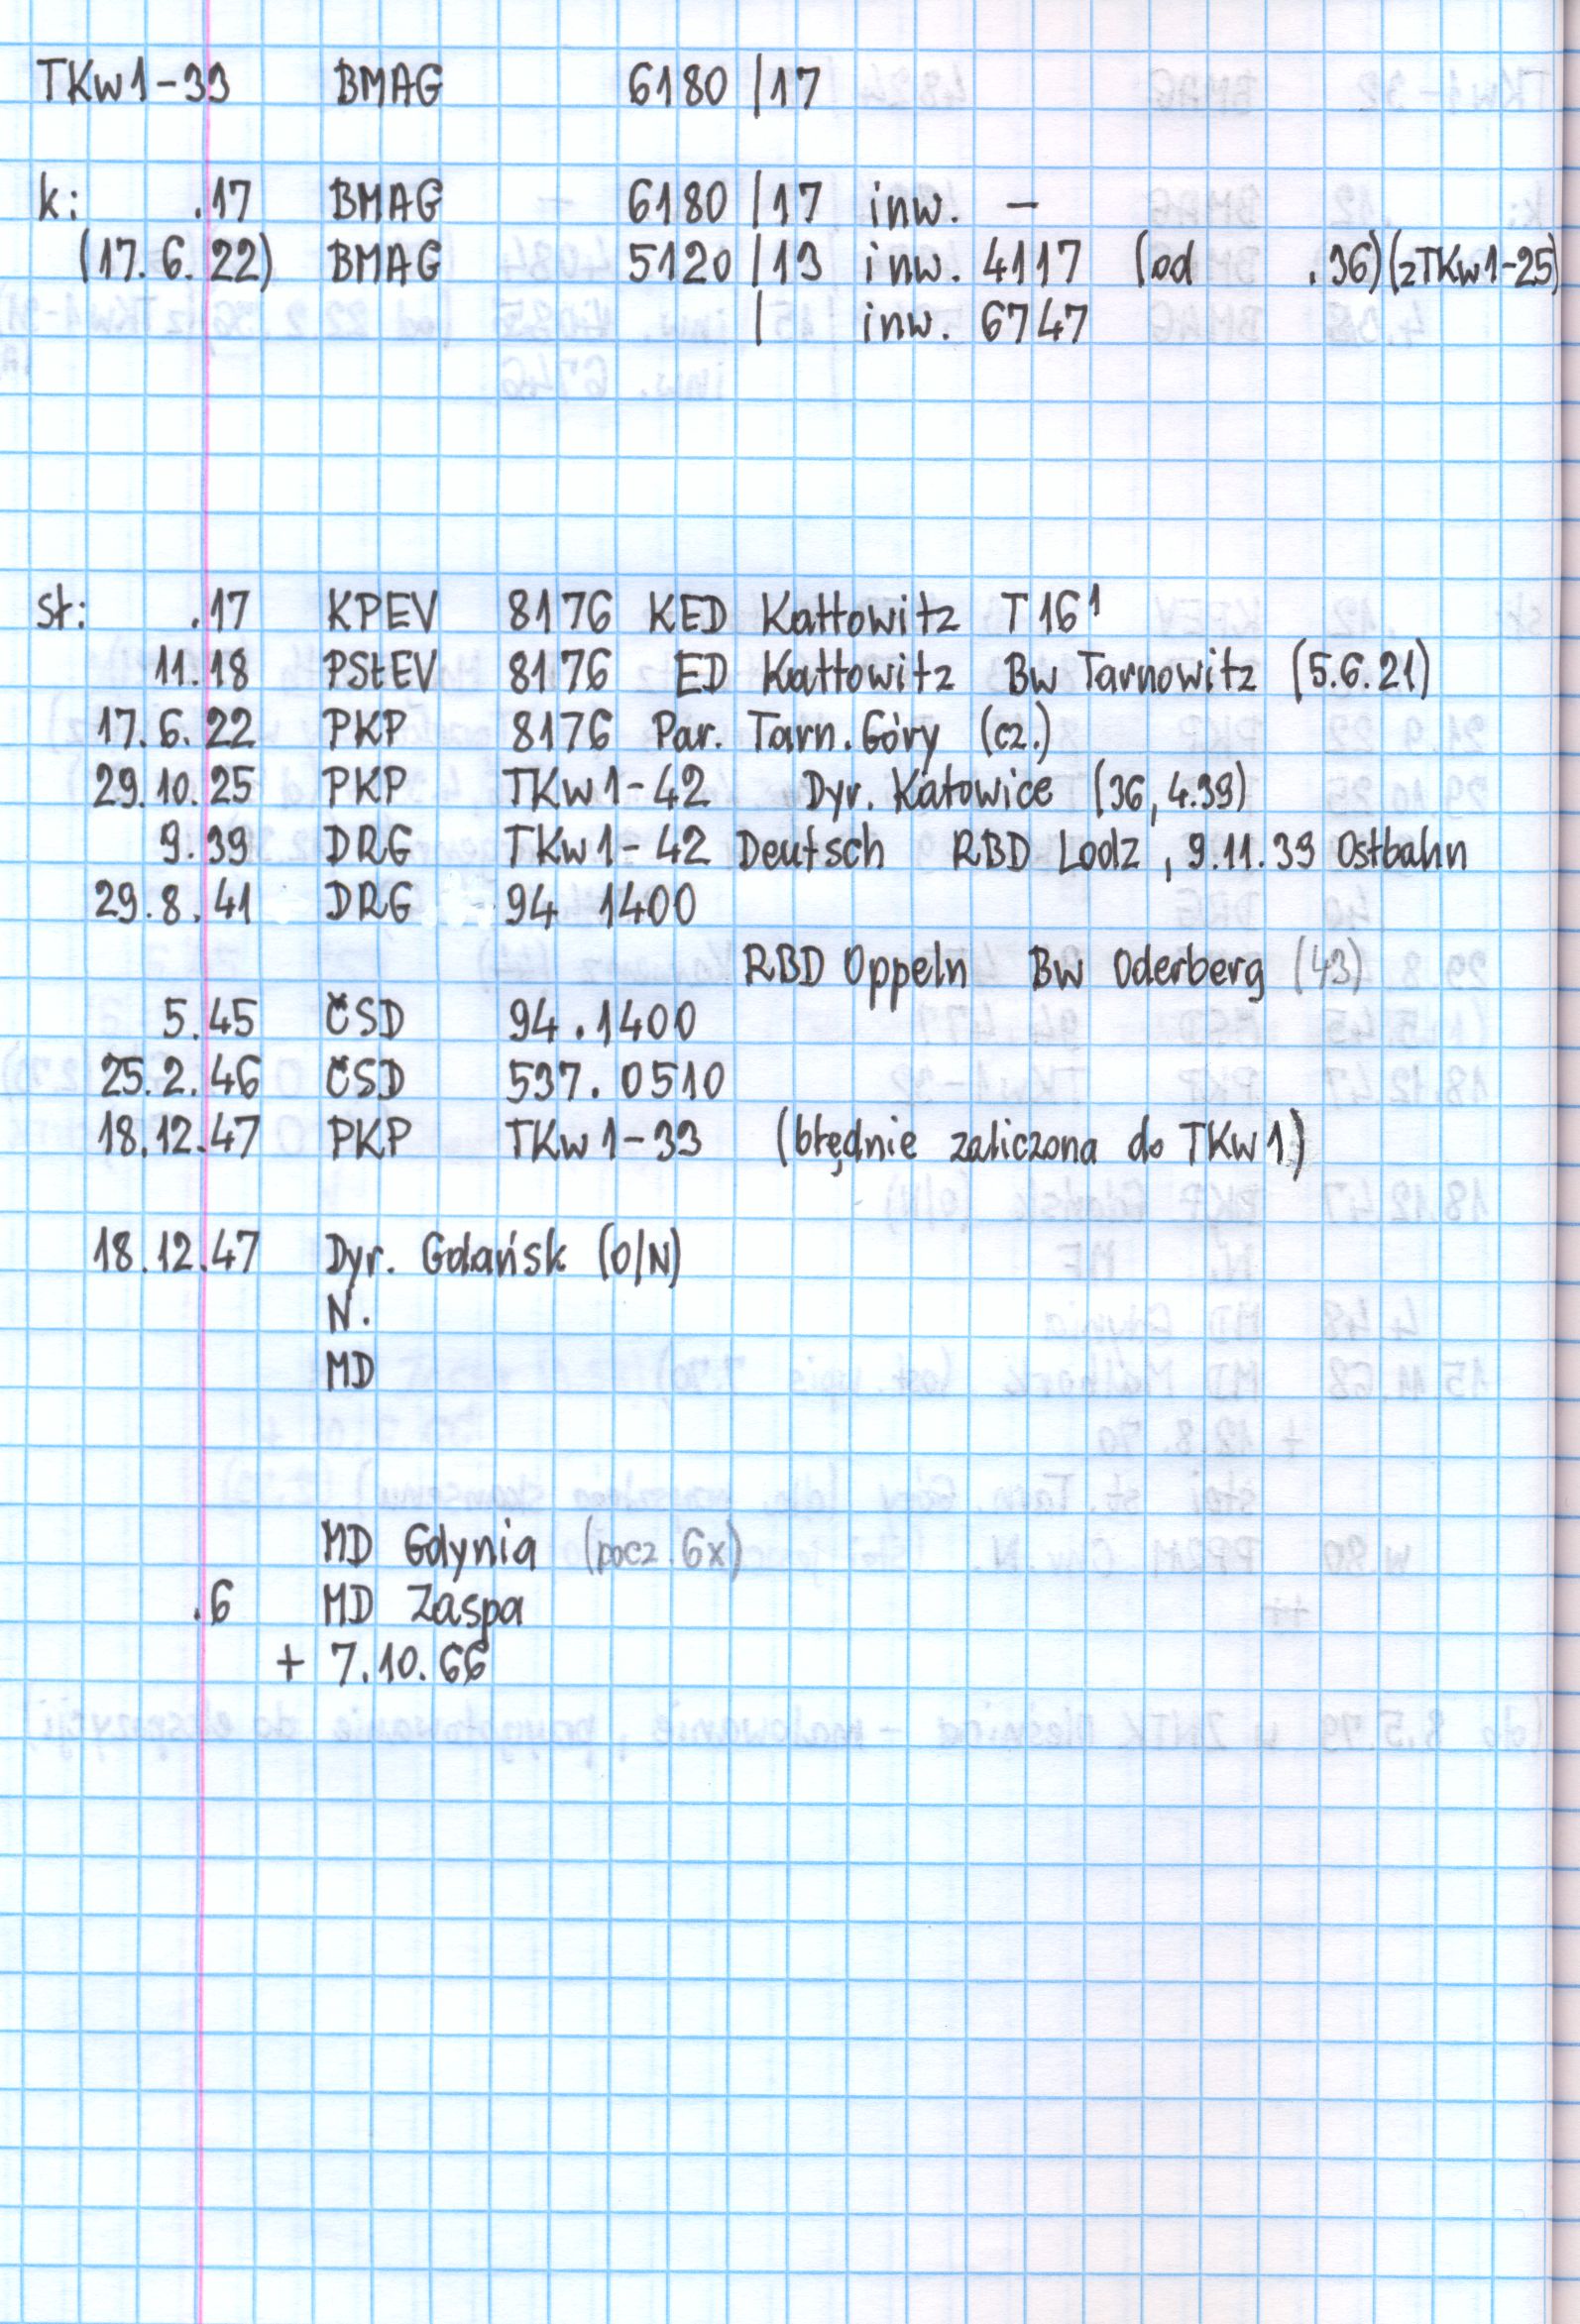 TKw1-33 BMAG 6180 /17
k: .17 BMAG 6180 /17 inw. -
(17.6.22) BMAG 5120 /13 inw. 4117 (od .36) (z TKw1-25)
| inw. 6747
st: .17 KPEV 8176 KED Kattowitz T 16¹
11.18 PStEV 8176 ED Kattowitz Bw Tarnowitz (5.6.21)
17.6.22 PKP 8176 Par. Tarn. Góry (cz.)
29.10.25 PKP TKw1-42 Dyr. Katowice (36, 4.39)
9.39 DRG TKw1-42 Deutsch RBD Lodz, 9.11.39 Ostbahn
29.8.41 DRG 94 1400
RBD Oppeln Bw Oderberg (43)
5.45 ČSD 94.1400
25.2.46 ČSD 537.0510
18.12.47 PKP TKw1-33 (błędnie zaliczona do TKw1)
18.12.47 Dyr. Gdańsk (O/N)
N.
MD
MD Gdynia (pocz. 6x)
.6 MD Zaspa
+ 7.10.66